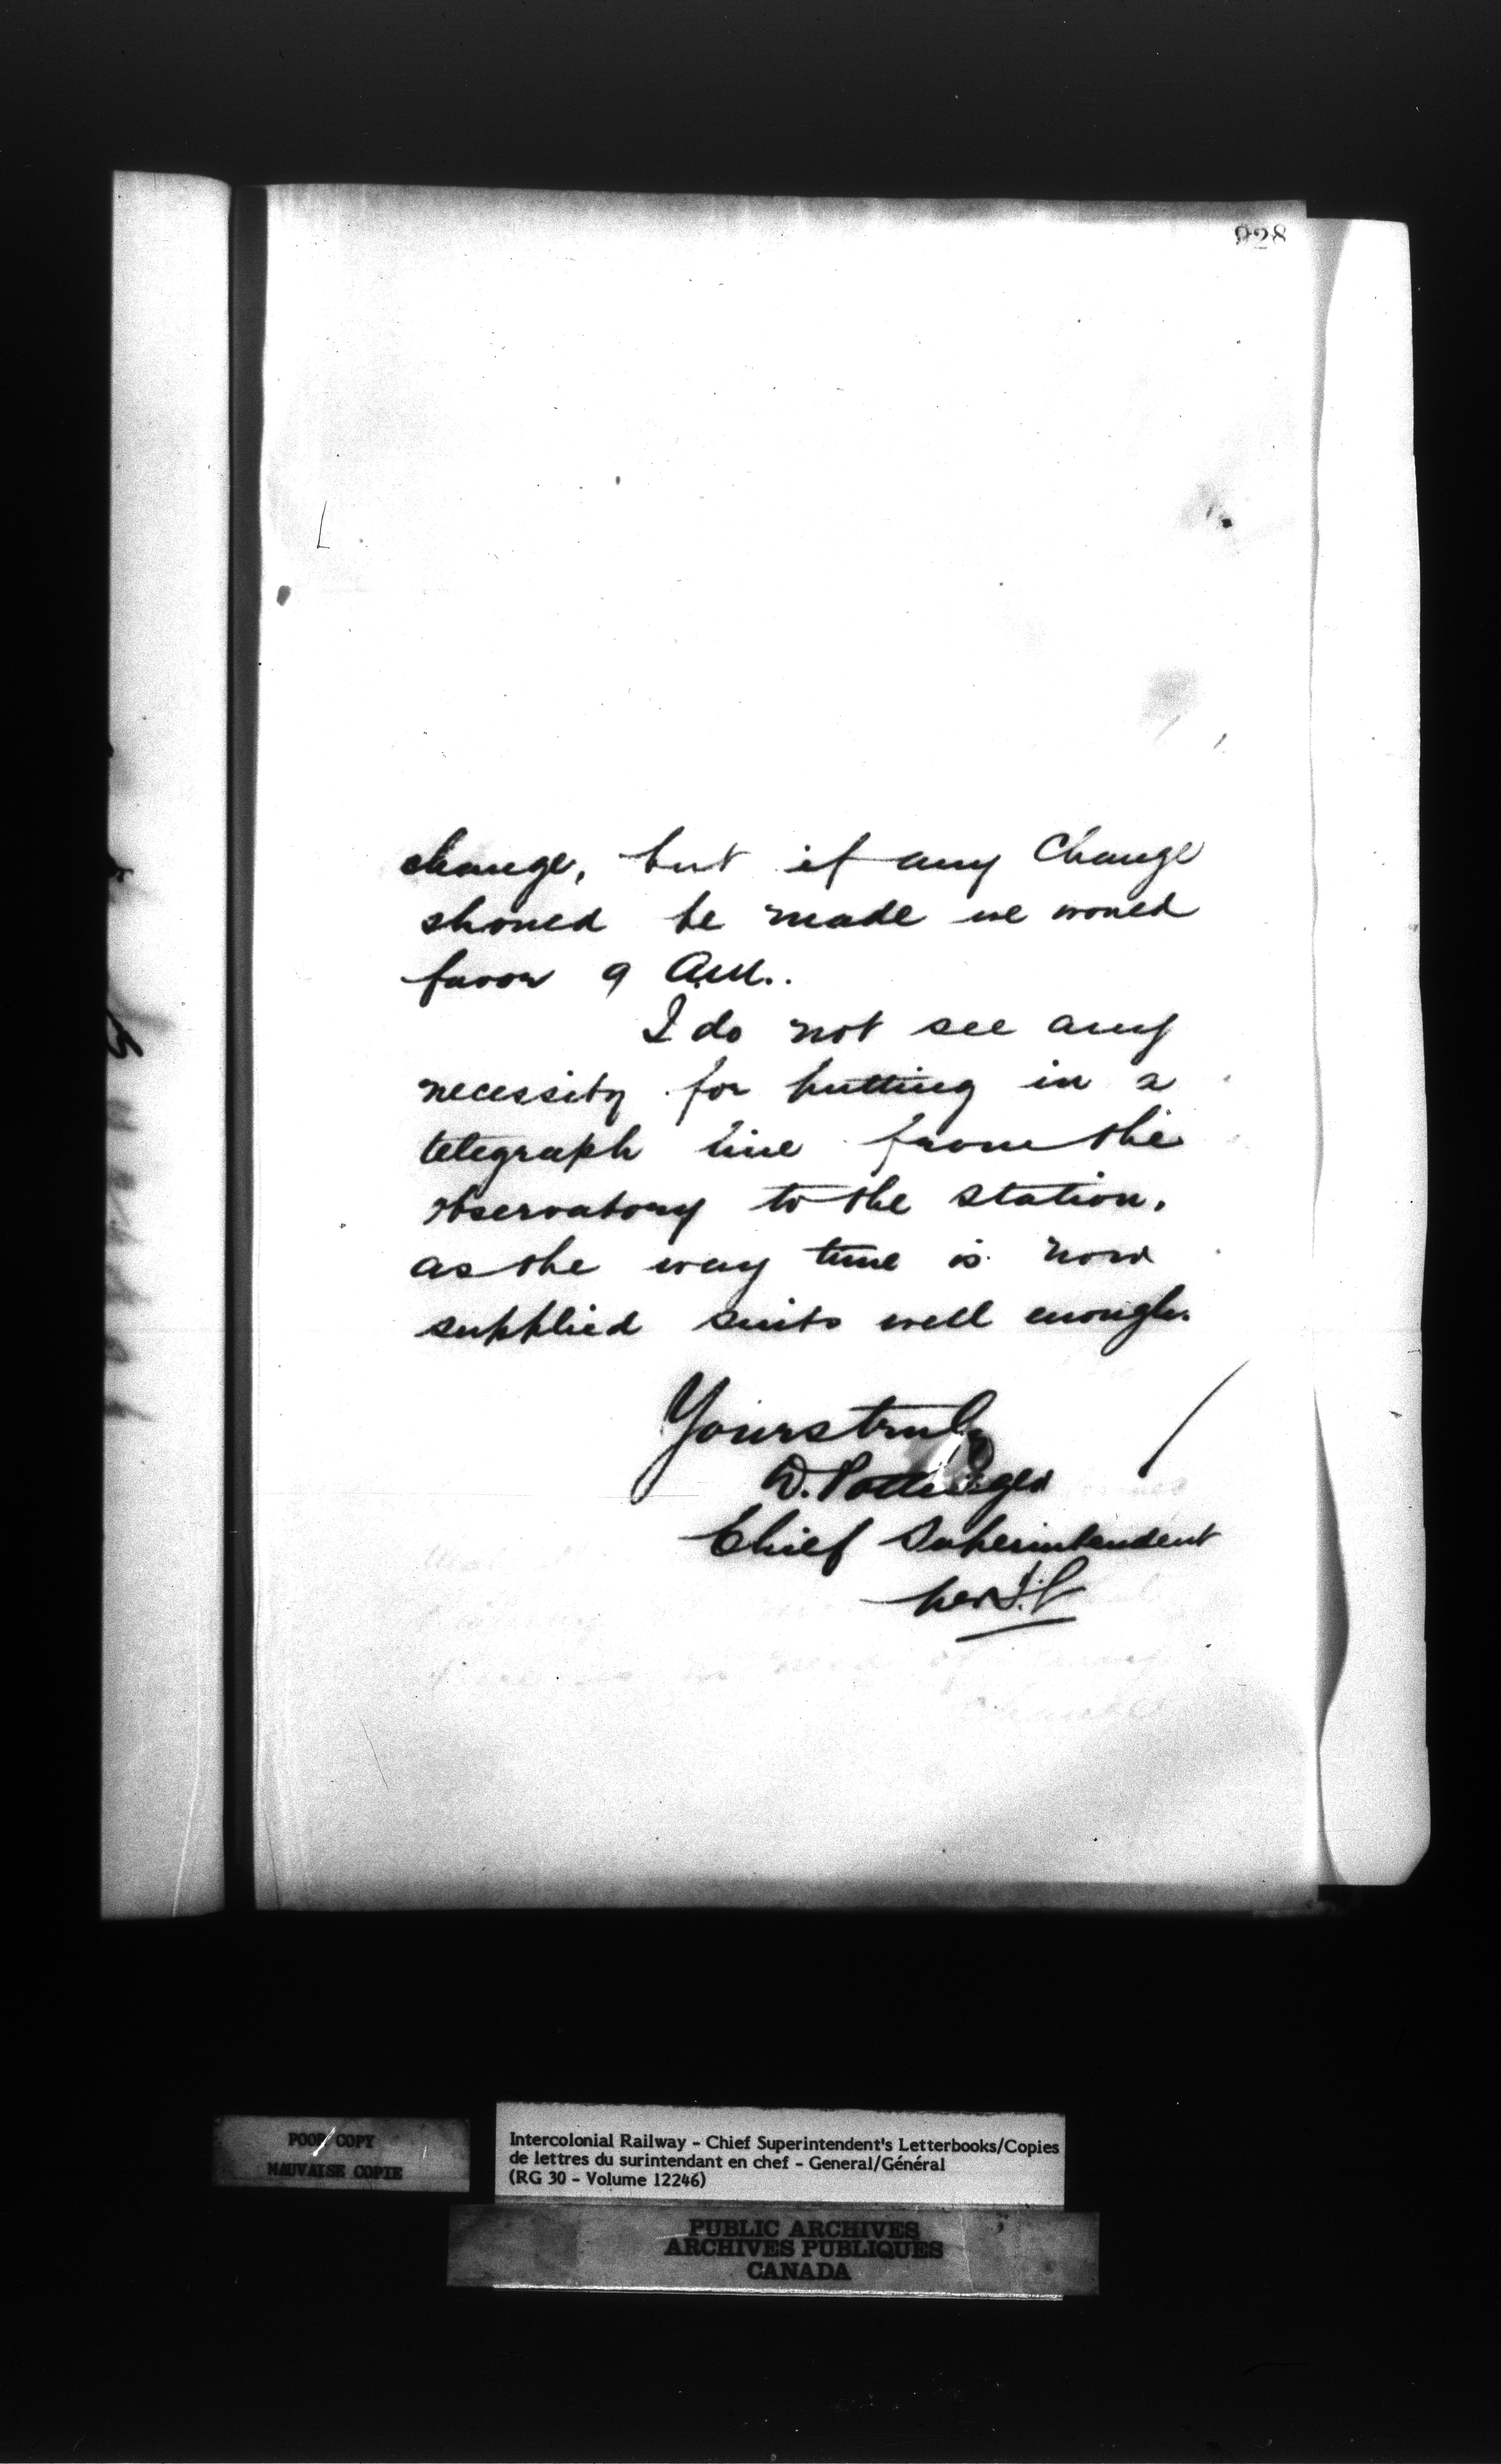 928
change, but if any Change
should be made we would
favor 9 A.M.
I do not see any
necessity for putting in a
telegraph line from the
observatory to the station,
as the way time is now
supplied suits well enough.
Yours truly
D. Pottinger
Chief Superintendent
per
POOR COPY
MAUVAISE COPIE
Intercolonial Railway - Chief Superintendent's Letterbooks/Copies
de lettres du surintendant en chef - General/Général
(RG 30 - Volume 12246)
PUBLIC ARCHIVES
ARCHIVES PUBLIQUES
CANADA